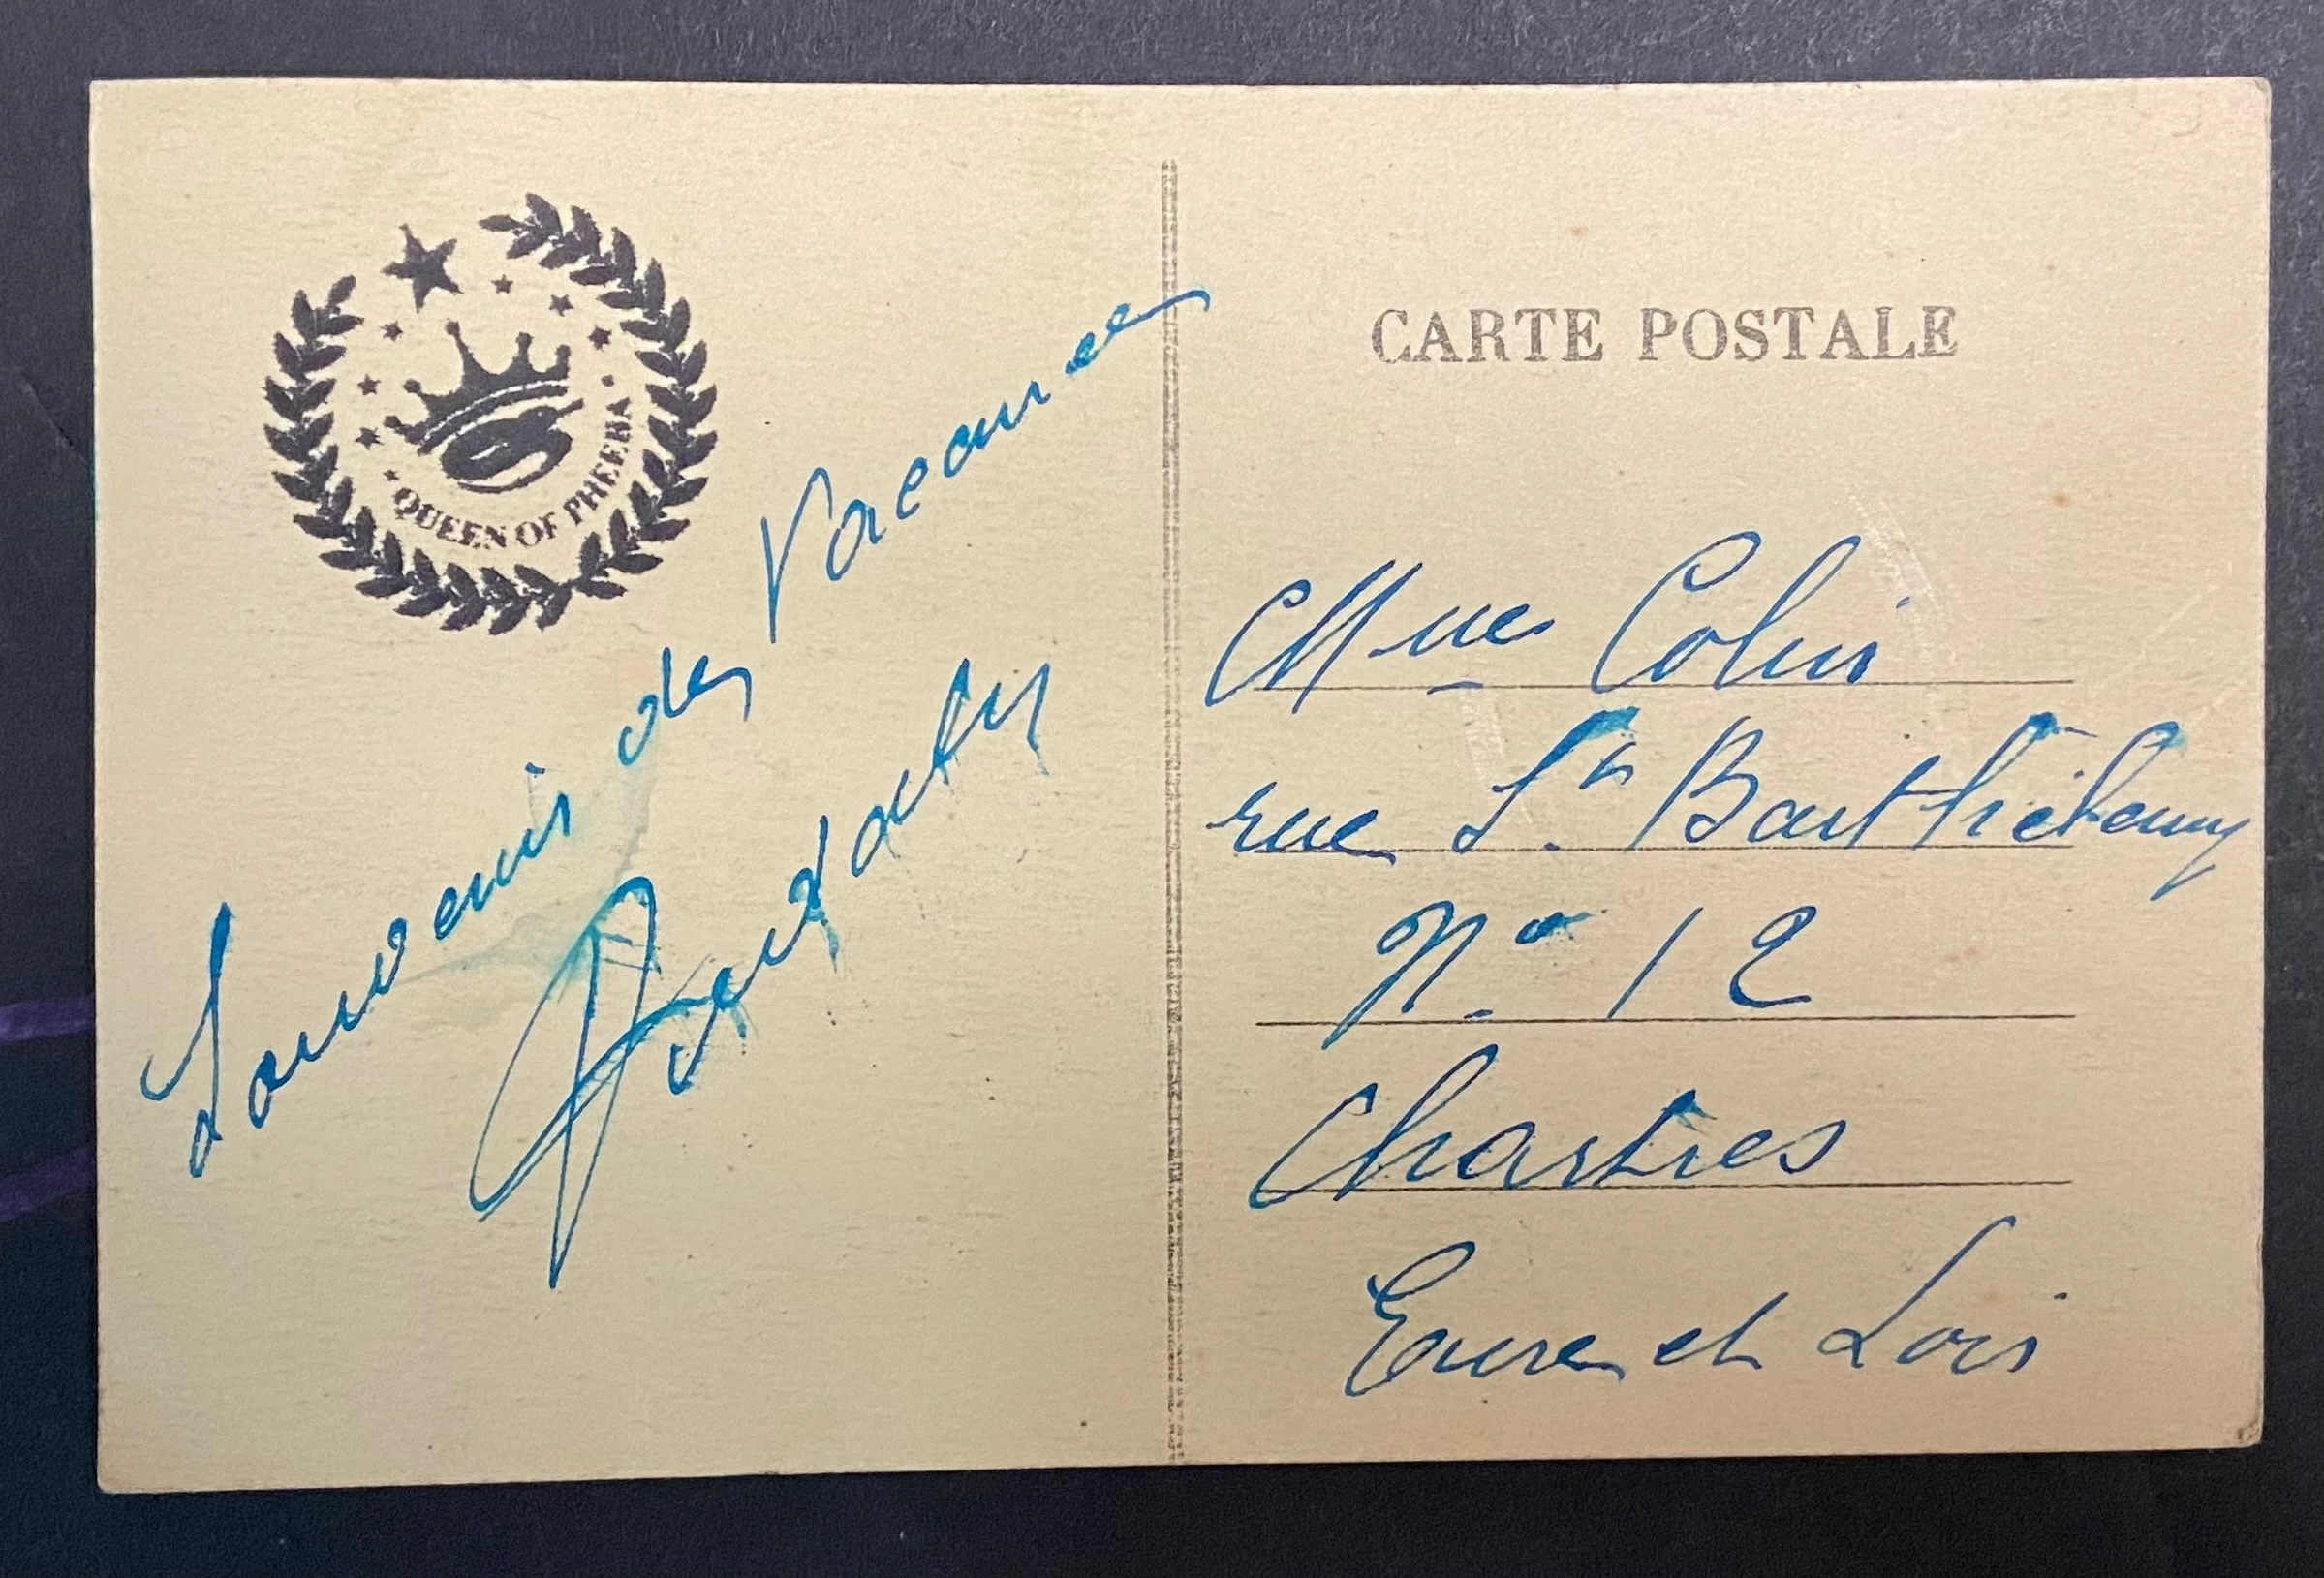 QUEEN OF PHEEBA
Souvenir des Vacances
CARTE POSTALE
Mme Colin
rue St. Barthélemy
No 12
Chartres
Eure et Loir